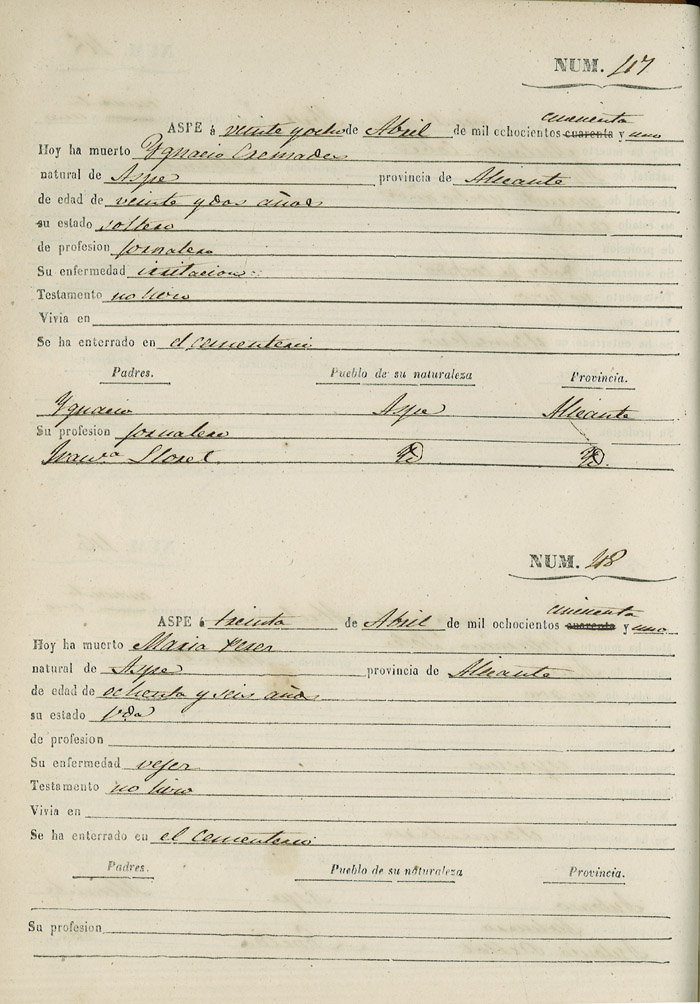 NUM. 47
cincuenta
ASPE á veinte y ocho de Abril de mil ochocientos cuarenta y uno
Hoy ha muerto Ygnacio Cremades
natural de Aspe provincia de Alicante
de edad de veinte y dos años
su estado soltero
de profesion jornalero
Su enfermedad irritacion
Testamento no hizo
Vivia en
Se ha enterrado en el cementerio
Padres. Pueblo de su naturaleza Provincia.
Ygnacio Aspe Alicante
Su profesion jornalero
Franca Lloret Yd Yd.
NUM. 48
cincuenta
ASPE á treinta de Abril de mil ochocientos cuarenta y uno
Hoy ha muerto Maria Perez
natural de Aspe provincia de Alicante
de edad de ochenta y seis años
su estado vda
de profesion
Su enfermedad vejez
Testamento no hizo
Vivia en
Se ha enterrado en el cementerio
Padres. Pueblo de su naturaleza Provincia.
Su profesion